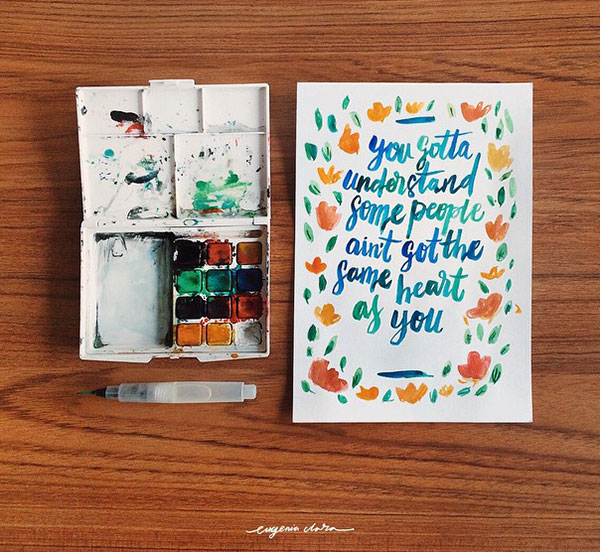 you gotta
understand
some people
ain't got the
same heart
as you
eugenia clara